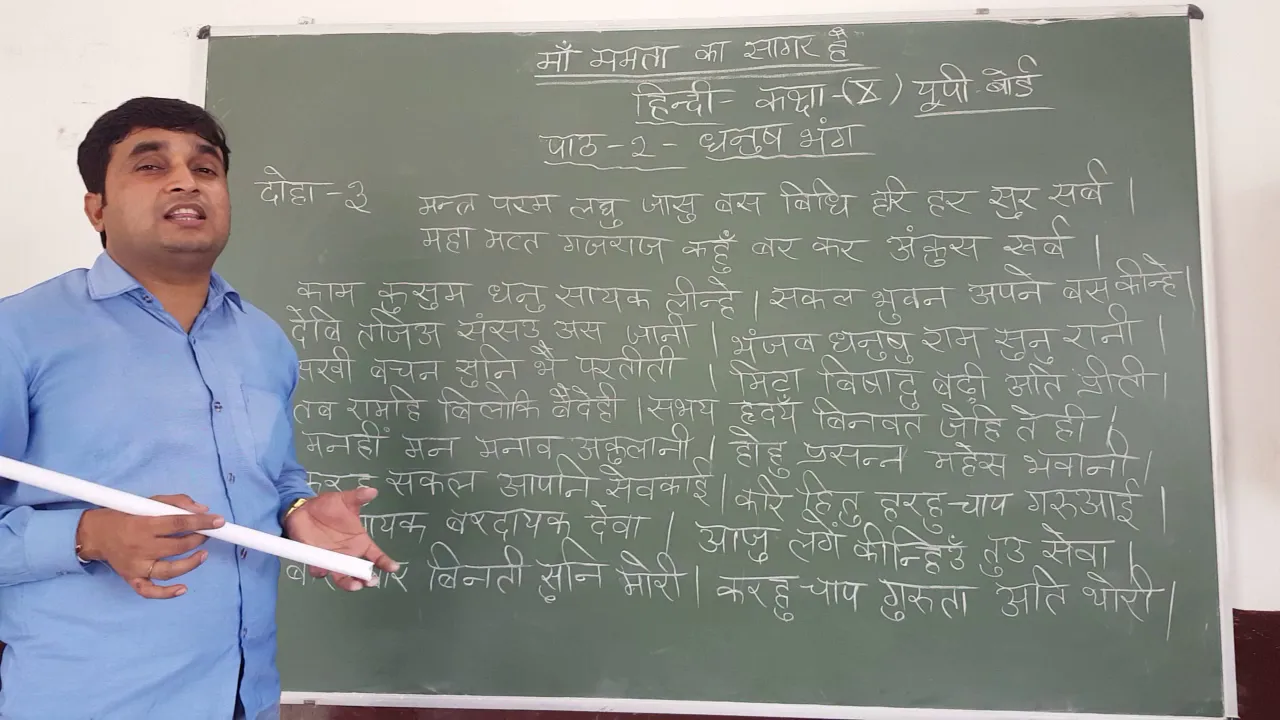 माँ ममता का सागर है
हिन्दी - कक्षा-(X) यूपी बोर्ड
पाठ-२- धनुष भंग
दोहा-३ मन्त्र परम लघु जासु बस बिधि हरि हर सुर सर्ब ।
महा मत्त गजराज कहुँ बर कर अंकुस खर्ब ।
काम कुसुम धनु सायक लीन्हे । सकल भुवन अपने बस कीन्हे ।
देबि तजिअ संसउ अस जानी । भंजब धनुषु राम सुनु रानी ।
सखी बचन सुनि भै परतीती । मिटा बिषादु बढ़ी अति प्रीती ।
तब रामहि बिलोकि बैदेही । सभय हृदयँ बिनवत जेहि ते ही ।
मनहीं मन मनाव अकुलानी । होहु प्रसन्न महेस भवानी ।
करहु सकल आपनि सेवकाई । करि हितु हरहु चाप गरुआई ।
बरदायक देवा । आजु लगें कीन्हिउँ तुउ सेवा ।
बिनती सुनि मोरी । करहु चाप गुरुता अति थोरी ।